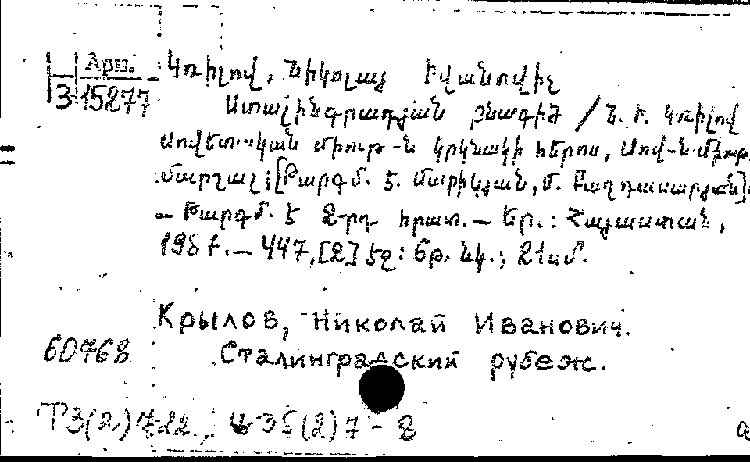 Арш.
З 15277
Կռիլով, Նիկոլայ Իվանովիչ
Ստալինգրադյան բնագիծ / Ն. Ի. Կռիլով
սովետական միութ-ն կրկնակի հերոս, Սով-ն միութ.
մարշալ; [Թարգմ. Տ. Մարիկյան, Մ. Բաղդասարյան]
– Թարգմ. է 2-րդ հրատ. – Եր.: Հայաստան,
198 թ. – 447, [2] էջ: 6թ. նկ.; 21սմ.
Крылов, Николай Иванович.
60768 Сталинградский рубеж.
Т3(2)722 ; 35(2)7 - 8